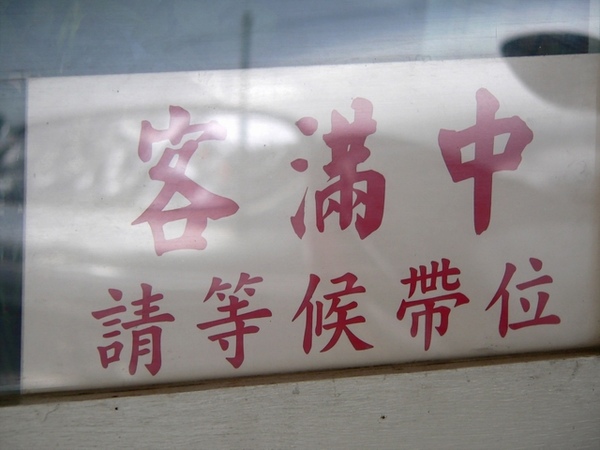 客滿中
請等候帶位